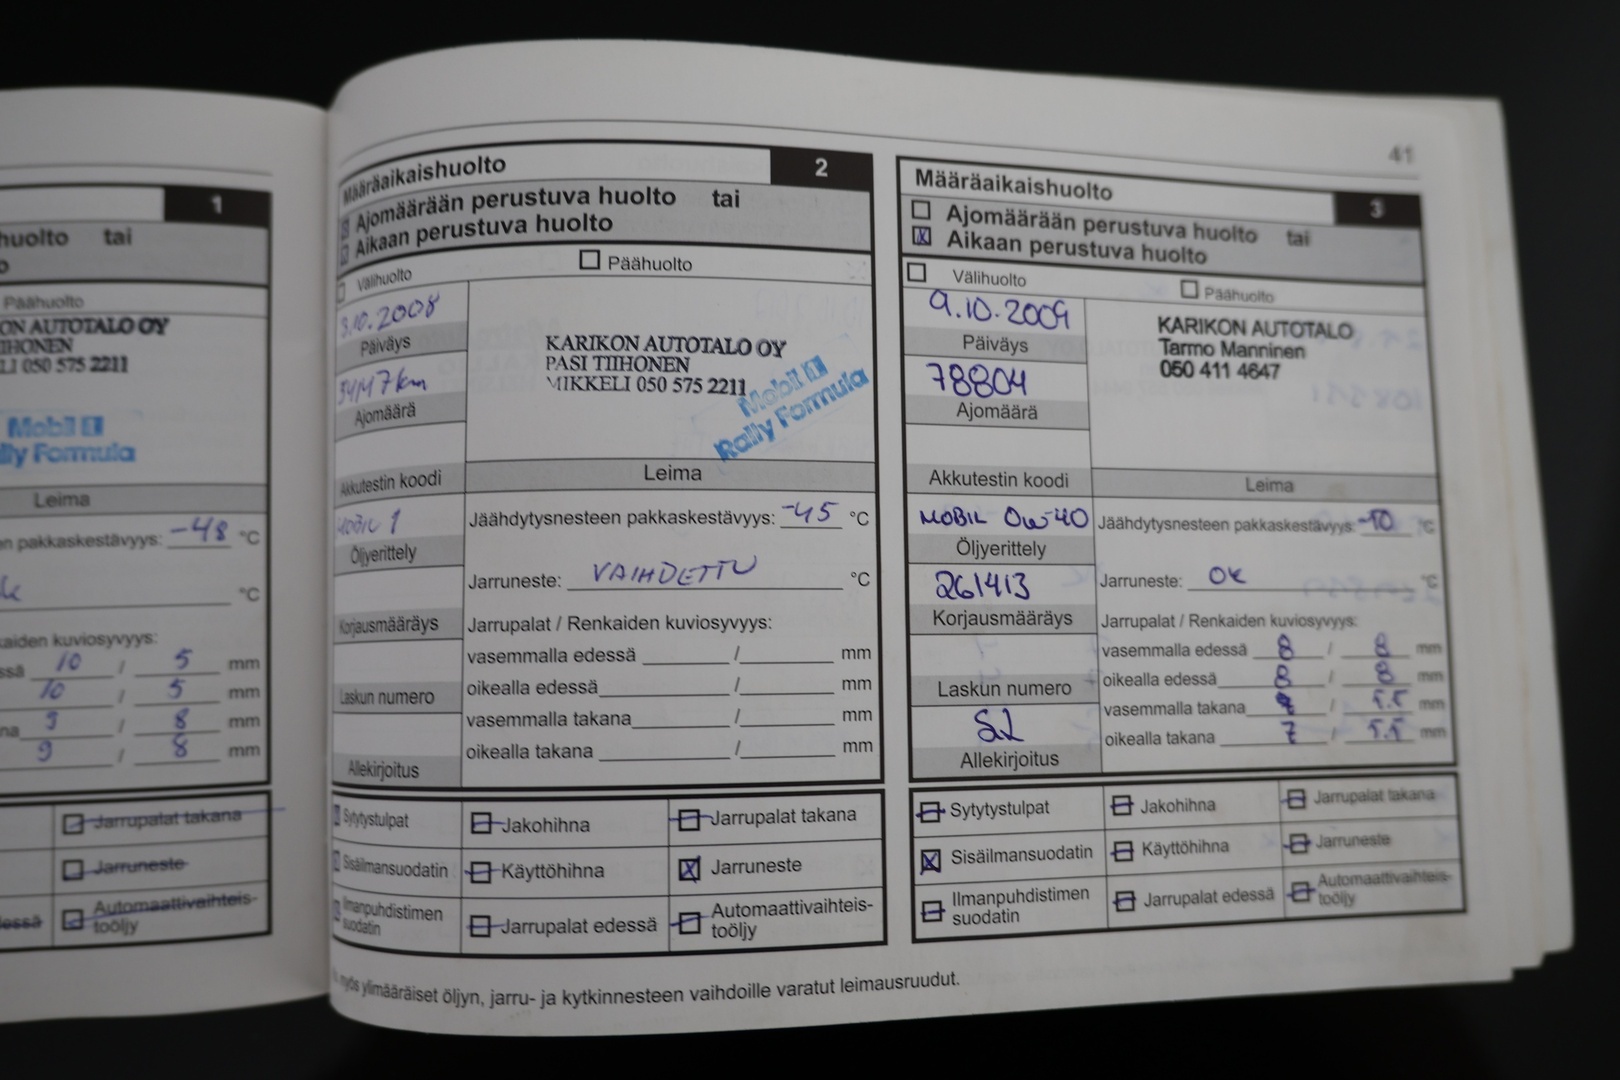 41
1
huolto tai
Päähuolto
ON AUTOTALO OY
IIHONEN
LI 050 575 2211
Mobil 1
lly Formula
Leima
en pakkaskestävyys: -48 °C
°C
kaiden kuviosyvyys:
ssä 10 / 5 mm
10 / 5 mm
na 9 / 8 mm
9 / 8 mm
Jarrupalat takana
Jarruneste
dessä
Automaattivaihteis-
toöljy
Määräaikaishuolto 2
Ajomäärään perustuva huolto tai
Aikaan perustuva huolto
Välihuolto
Päähuolto
3.10.2008
Päiväys
KARIKON AUTOTALO OY
PASI TIIHONEN
MIKKELI 050 575 2211
Mobil 1
Rally Formula
Ajomäärä
Akkutestin koodi
Leima
MOBIL 1
Öljyerittely
Jäähdytysnesteen pakkaskestävyys: -45 °C
Jarruneste: VAIHDETTU °C
Korjausmääräys
Jarrupalat / Renkaiden kuviosyvyys:
vasemmalla edessä / mm
oikealla edessä / mm
Laskun numero
vasemmalla takana / mm
oikealla takana / mm
Allekirjoitus
Sytytystulpat
Jakohihna
Jarrupalat takana
Sisäilmansuodatin
Käyttöhihna
Jarruneste
Ilmanpuhdistimen
suodatin
Jarrupalat edessä
Automaattivaihteis-
toöljy
Määräaikaishuolto 3
Ajomäärään perustuva huolto tai
Aikaan perustuva huolto
Välihuolto
Päähuolto
9.10.2009
Päiväys
KARIKON AUTOTALO
Tarmo Manninen
050 411 4647
78804
Ajomäärä
Akkutestin koodi
Leima
MOBIL 0w-40
Öljyerittely
Jäähdytysnesteen pakkaskestävyys: °C
261413
Korjausmääräys
Jarruneste: OK °C
Jarrupalat / Renkaiden kuviosyvyys:
vasemmalla edessä 8 / 8 mm
oikealla edessä 8 / 8 mm
Laskun numero
vasemmalla takana / 5.5 mm
oikealla takana 7 / 5.5 mm
Allekirjoitus
Sytytystulpat
Jakohihna
Jarrupalat takana
Sisäilmansuodatin
Käyttöhihna
Jarruneste
Ilmanpuhdistimen
suodatin
Jarrupalat edessä
Automaattivaihteis-
toöljy
myös ylimääräiset öljyn, jarru- ja kytkinnesteen vaihdoille varatut leimausruudut.